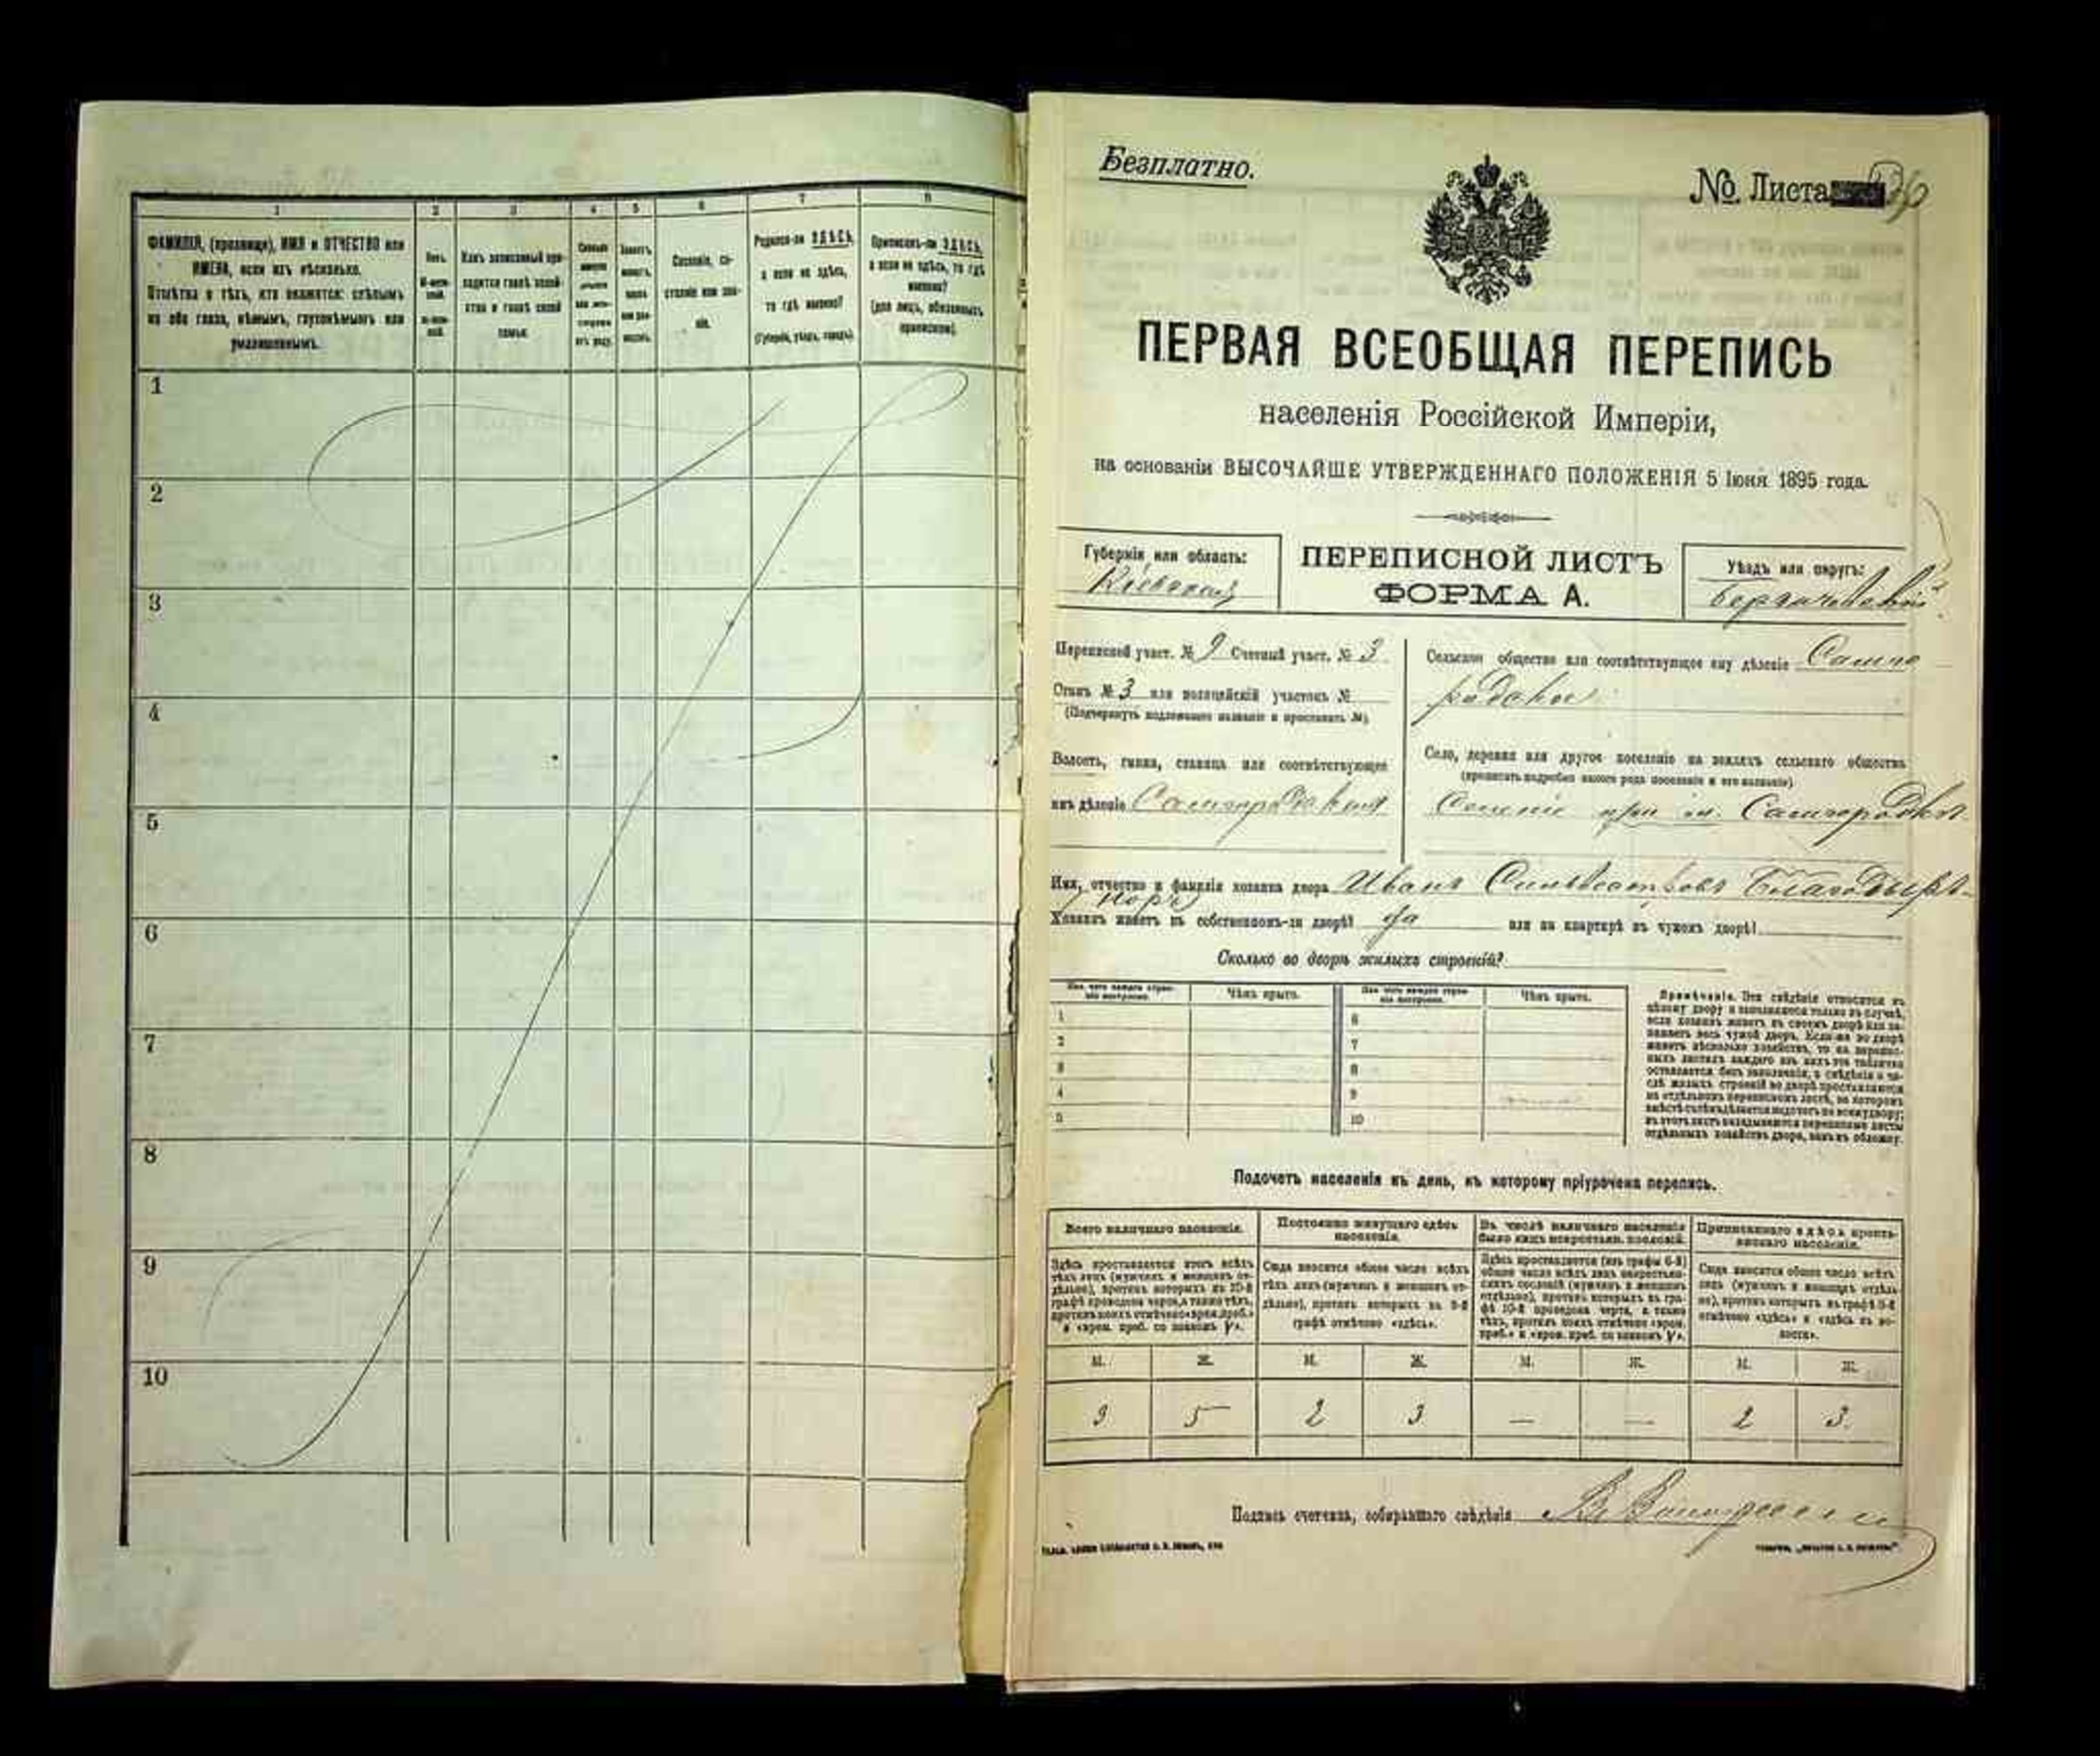 1 2 3 4 5 6 7 8
ФАМИЛІЯ, (прозвище), ИМЯ и ОТЧЕСТВО или
ИМЕНА, если ихъ нѣсколько.
Отмѣтка о тѣхъ, кто окажется: слѣпымъ
на оба глаза, нѣмымъ, глухонѣмымъ или
умалишеннымъ.
Полъ.
Какъ записанный при-
ходится главѣ хозяй-
ства и главѣ своей
семьи.
Сословіе, со-
стояніе или зва-
ніе.
Родился-ли ЗДѢСЬ,
а если не здѣсь,
то гдѣ именно?
(Губернія, уѣздъ, городъ).
Приписанъ-ли ЗДѢСЬ,
а если не здѣсь, то гдѣ
именно?
(для лицъ, обязанныхъ
припискою).
1
2
3
4
5
6
7
8
9
10
Безплатно.
№ Листа
ПЕРВАЯ ВСЕОБЩАЯ ПЕРЕПИСЬ
населенія Россійской Имперіи,
на основаніи ВЫСОЧАЙШЕ УТВЕРЖДЕННАГО ПОЛОЖЕНІЯ 5 Іюня 1895 года.
Губернія или область:
Кіевская
ПЕРЕПИСНОЙ ЛИСТЪ
ФОРМА А.
Уѣздъ или округъ:
Бердичевскій
Переписной участ. № 9 Счетный участ. № 3
Станъ № 3 или полицейскій участокъ №
(Подчеркнуть подлежащее названіе и проставить №).
Волость, гмина, станица или соотвѣтствующее
имъ дѣленіе Самгородская
Сельское общество или соотвѣтствующее ему дѣленіе Самго
родское
Село, деревня или другое поселеніе на земляхъ сельскаго общества
(прописать подробно какого рода поселеніе и его названіе)
Селеніе при м. Самгородкѣ
Имя, отчество и фамилія хозяина двора Иванъ Сильвестровъ
Хозяинъ живетъ въ собственномъ-ли дворѣ? да или на квартирѣ въ чужомъ дворѣ?
Сколько во дворѣ жилыхъ строеній?
Изъ чего каждое строе-
ніе построено.
Чѣмъ крыто.
Изъ чего каждое строе-
ніе построено.
Чѣмъ крыто.
1 6
2 7
3 8
4 9
5 10
Примѣчаніе. Эти свѣдѣнія относятся къ
цѣлому двору и заполняются только въ случаѣ,
если хозяинъ живетъ въ своемъ дворѣ или за-
нимаетъ весь чужой дворъ. Если-же во дворѣ
живетъ нѣсколько хозяйствъ, то на перепис-
ныхъ листахъ каждаго изъ нихъ эта табличка
оставляется безъ заполненія, а свѣдѣнія о чи-
слѣ жилыхъ строеній во дворѣ проставляются
на отдѣльномъ переписномъ листѣ, на которомъ
вмѣстѣ съ тѣмъ дѣлается подсчетъ по всему двору;
въ этотъ листъ вкладываются переписные листы
отдѣльныхъ хозяйствъ двора, какъ въ обложку.
Подсчетъ населенія въ день, къ которому пріурочена перепись.
Всего наличнаго населенія.
Постоянно живущаго здѣсь
населенія.
Въ числѣ наличнаго населенія
было лицъ некрестьян. сословій.
Приписаннаго здѣсь кресть-
янскаго населенія.
Здѣсь проставляется итогъ всѣхъ
тѣхъ лицъ (мужчинъ и женщинъ от-
дѣльно), противъ которыхъ въ 10-й
графѣ проведена черта, а также тѣхъ,
противъ коихъ отмѣчено «врем. преб.»
и «врем. преб. со знакомъ V».
Сюда вносится общее число всѣхъ
тѣхъ лицъ (мужчинъ и женщинъ от-
дѣльно), противъ которыхъ въ 9-й
графѣ отмѣчено «здѣсь».
Здѣсь проставляется (изъ графы 6-й)
общее число всѣхъ лицъ некрестьян-
скихъ сословій (мужчинъ и женщинъ
отдѣльно), противъ которыхъ въ гра-
фѣ 10-й проведена черта, а также
тѣхъ, противъ коихъ отмѣчено «врем.
преб.» и «врем. преб. со знакомъ V».
Сюда вносится общее число всѣхъ
лицъ (мужчинъ и женщинъ отдѣль-
но), противъ которыхъ въ графѣ 8-й
отмѣчено «здѣсь» и «здѣсь въ во-
лости».
М. Ж. М. Ж. М. Ж. М. Ж.
3 5 2 3 — — 2 3
Подпись счетчика, собиравшаго свѣдѣнія